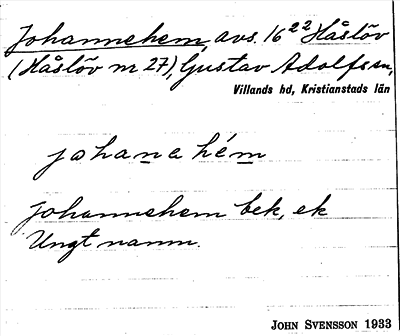 Johannehem, avs. 16²² Håslöv
(Håslöv nr 27), Gustav Adolfs sn,
Villands hd, Kristianstads län
johanahém
Johannehem bek., ek
Ungt namn.
JOHN SVENSSON 1933